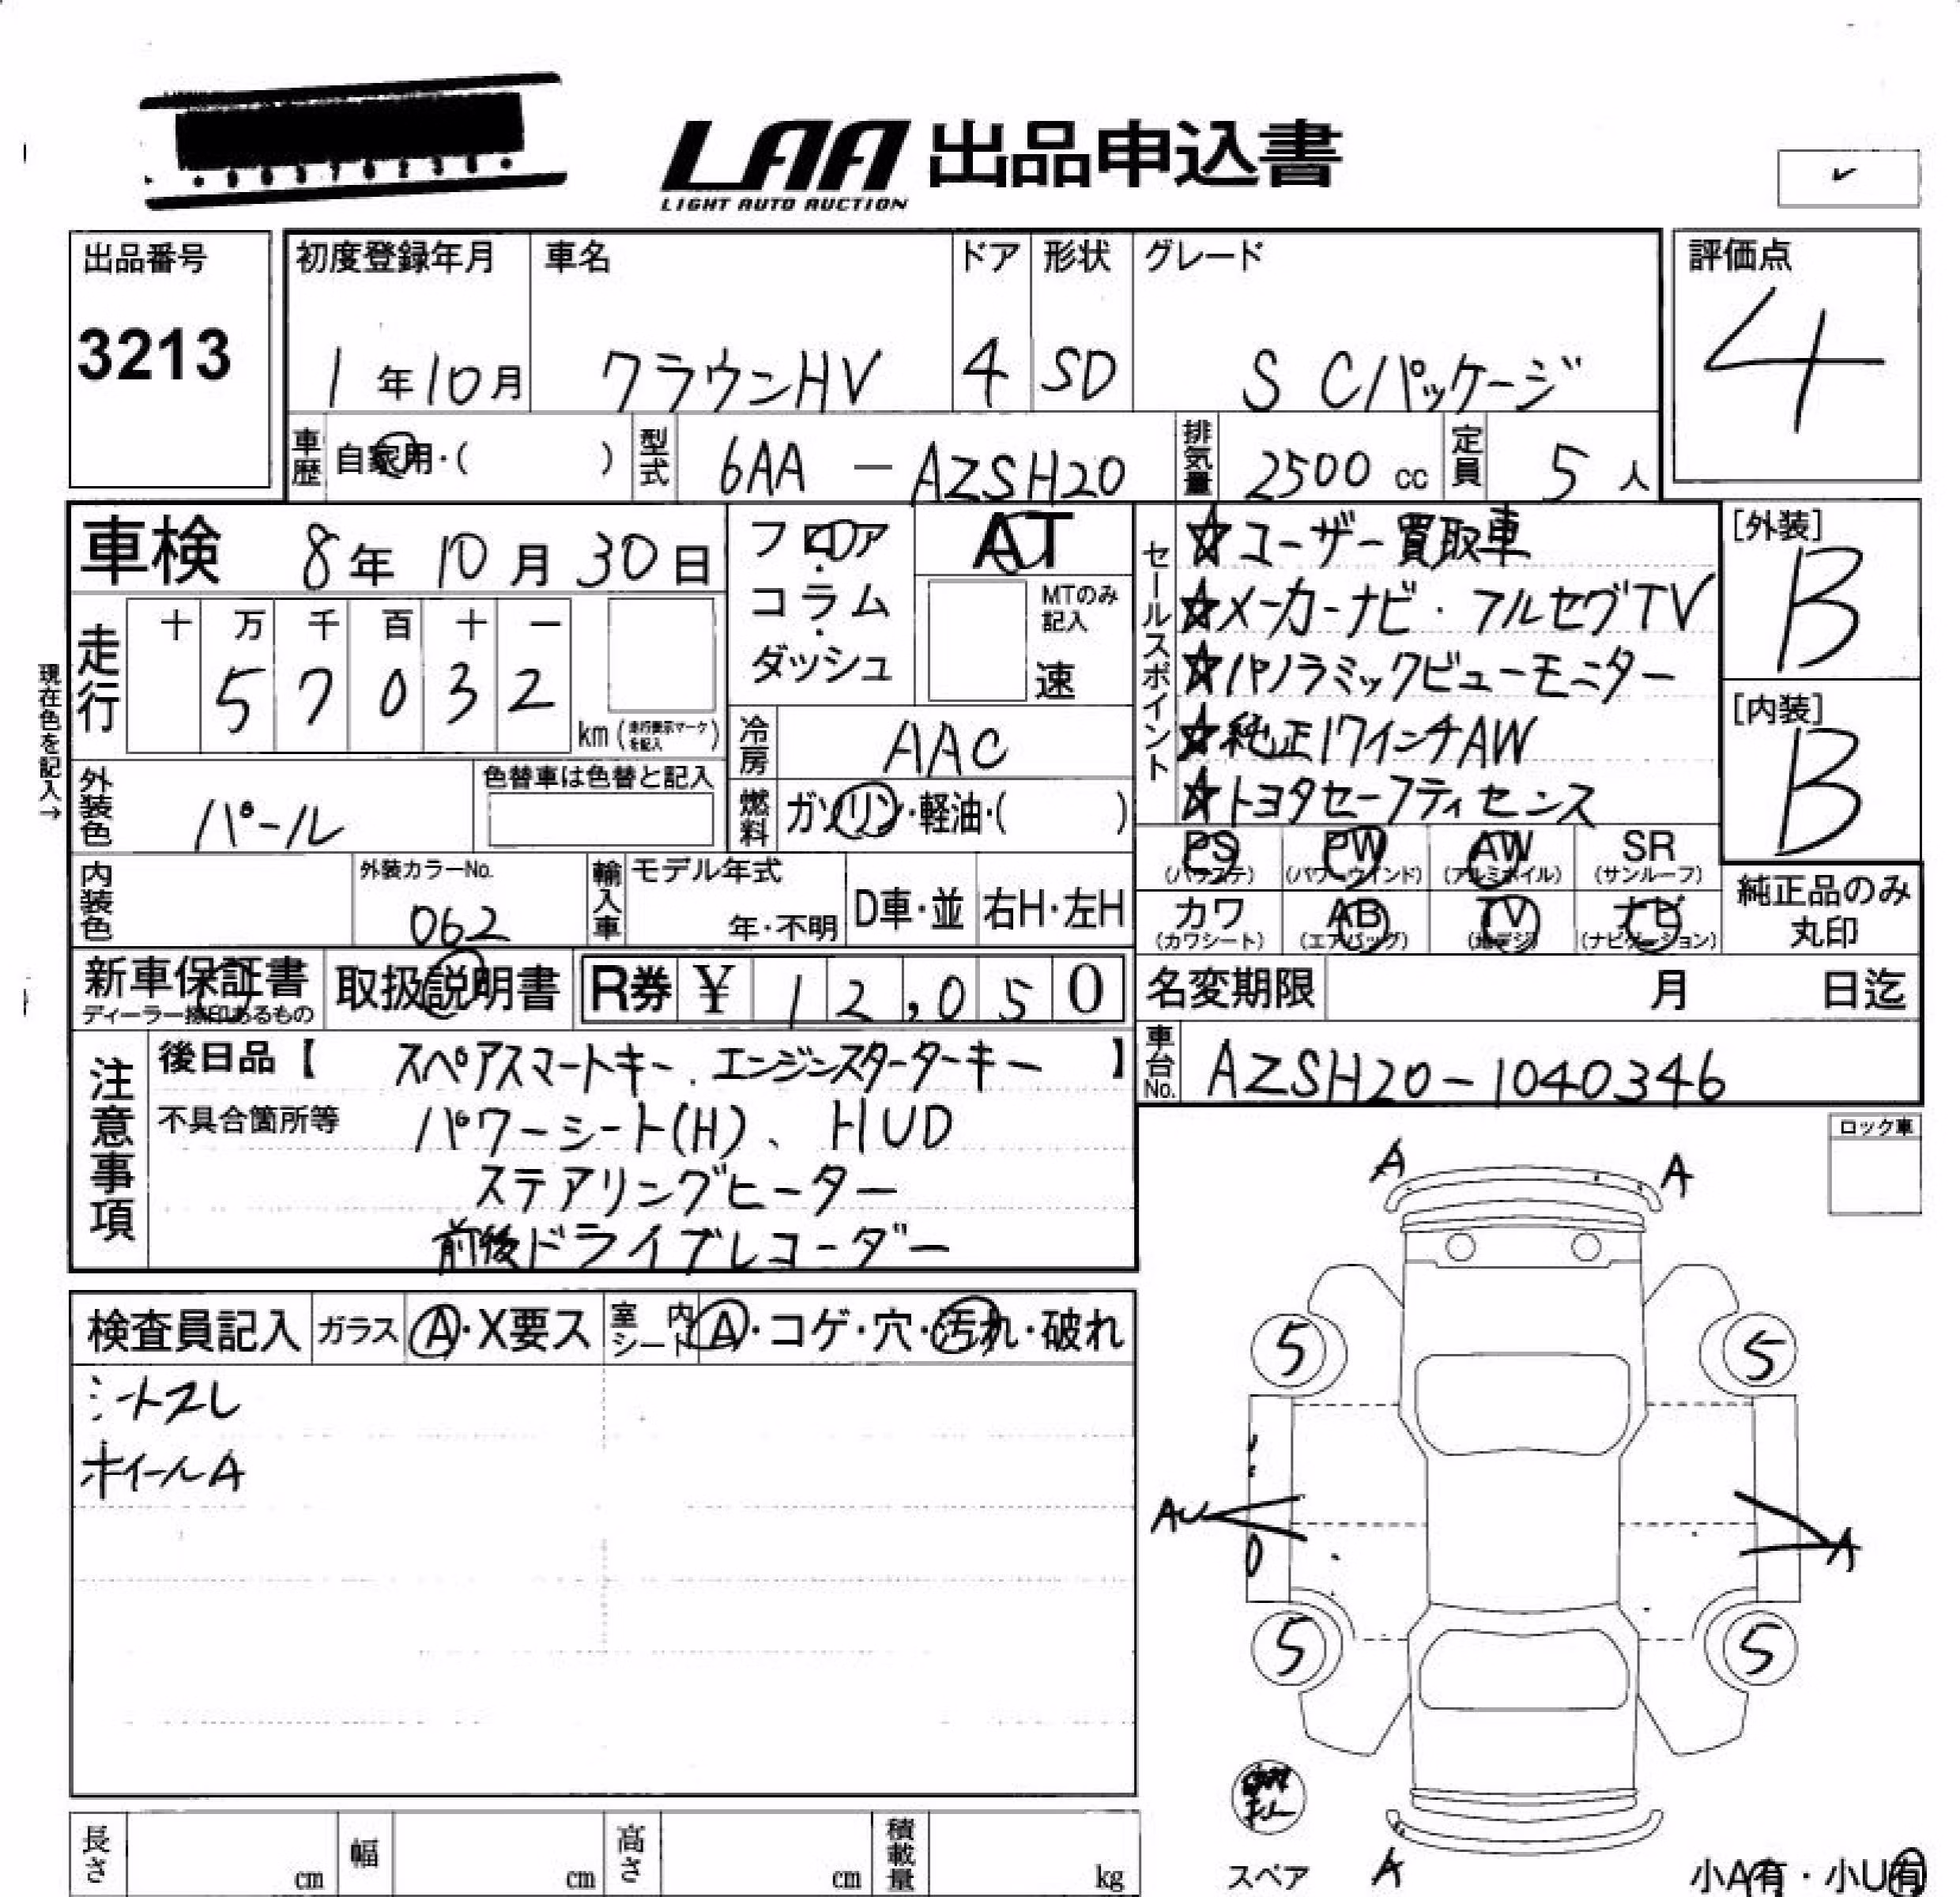 LAA 出品申込書
LIGHT AUTO AUCTION
出品番号
3213
初度登録年月
1年10月
車名
クラウンHV
ドア
4
形状
SD
グレード
S Cパッケージ
評価点
4
車歴 自家用・( )
型式 6AA - AZSH20
排気量 2500 cc
定員 5人
車検 8年10月30日
現在色を記入→
走行 十 万 千 百 十 一
5 7 0 3 2
km (走行表示マークを記入)
外装色 パール
色替車は色替と記入
内装色
外装カラーNo.
062
フロア・コラム・ダッシュ
AT
MTのみ記入
速
冷房 AAC
燃料 ガソリン・軽油・( )
輸入車 モデル年式
年・不明
D車・並
右H・左H
セールスポイント
☆ユーザー買取車
☆メーカーナビ・フルセグTV
☆パノラミックビューモニター
☆純正17インチAW
☆トヨタセーフティセンス
[外装]
B
[内装]
B
PS (パワステ) PW (パワーウインド) AW (アルミホイル) SR (サンルーフ)
カワ (カワシート) AB (エアバッグ) TV (地デジ) ナビ (ナビゲーション)
純正品のみ丸印
新車保証書
ディーラー捺印あるもの
取扱説明書
R券 ¥ 12,050
名変期限 月 日迄
車台No. AZSH20-1040346
注意事項
後日品【 スペアスマートキー、エンジンスターターキー 】
不具合箇所等 パワーシート(H)、HUD
ステアリングヒーター
前後ドライブレコーダー
ロック車
検査員記入 ガラス A・X要ス 室内シート A・コゲ・穴・汚れ・破れ
シートスレ
ホイールA
A A
5 5
AU A
5 5
スペア
A
小A有・小U有
長さ cm 幅 cm 高さ cm 積載量 kg